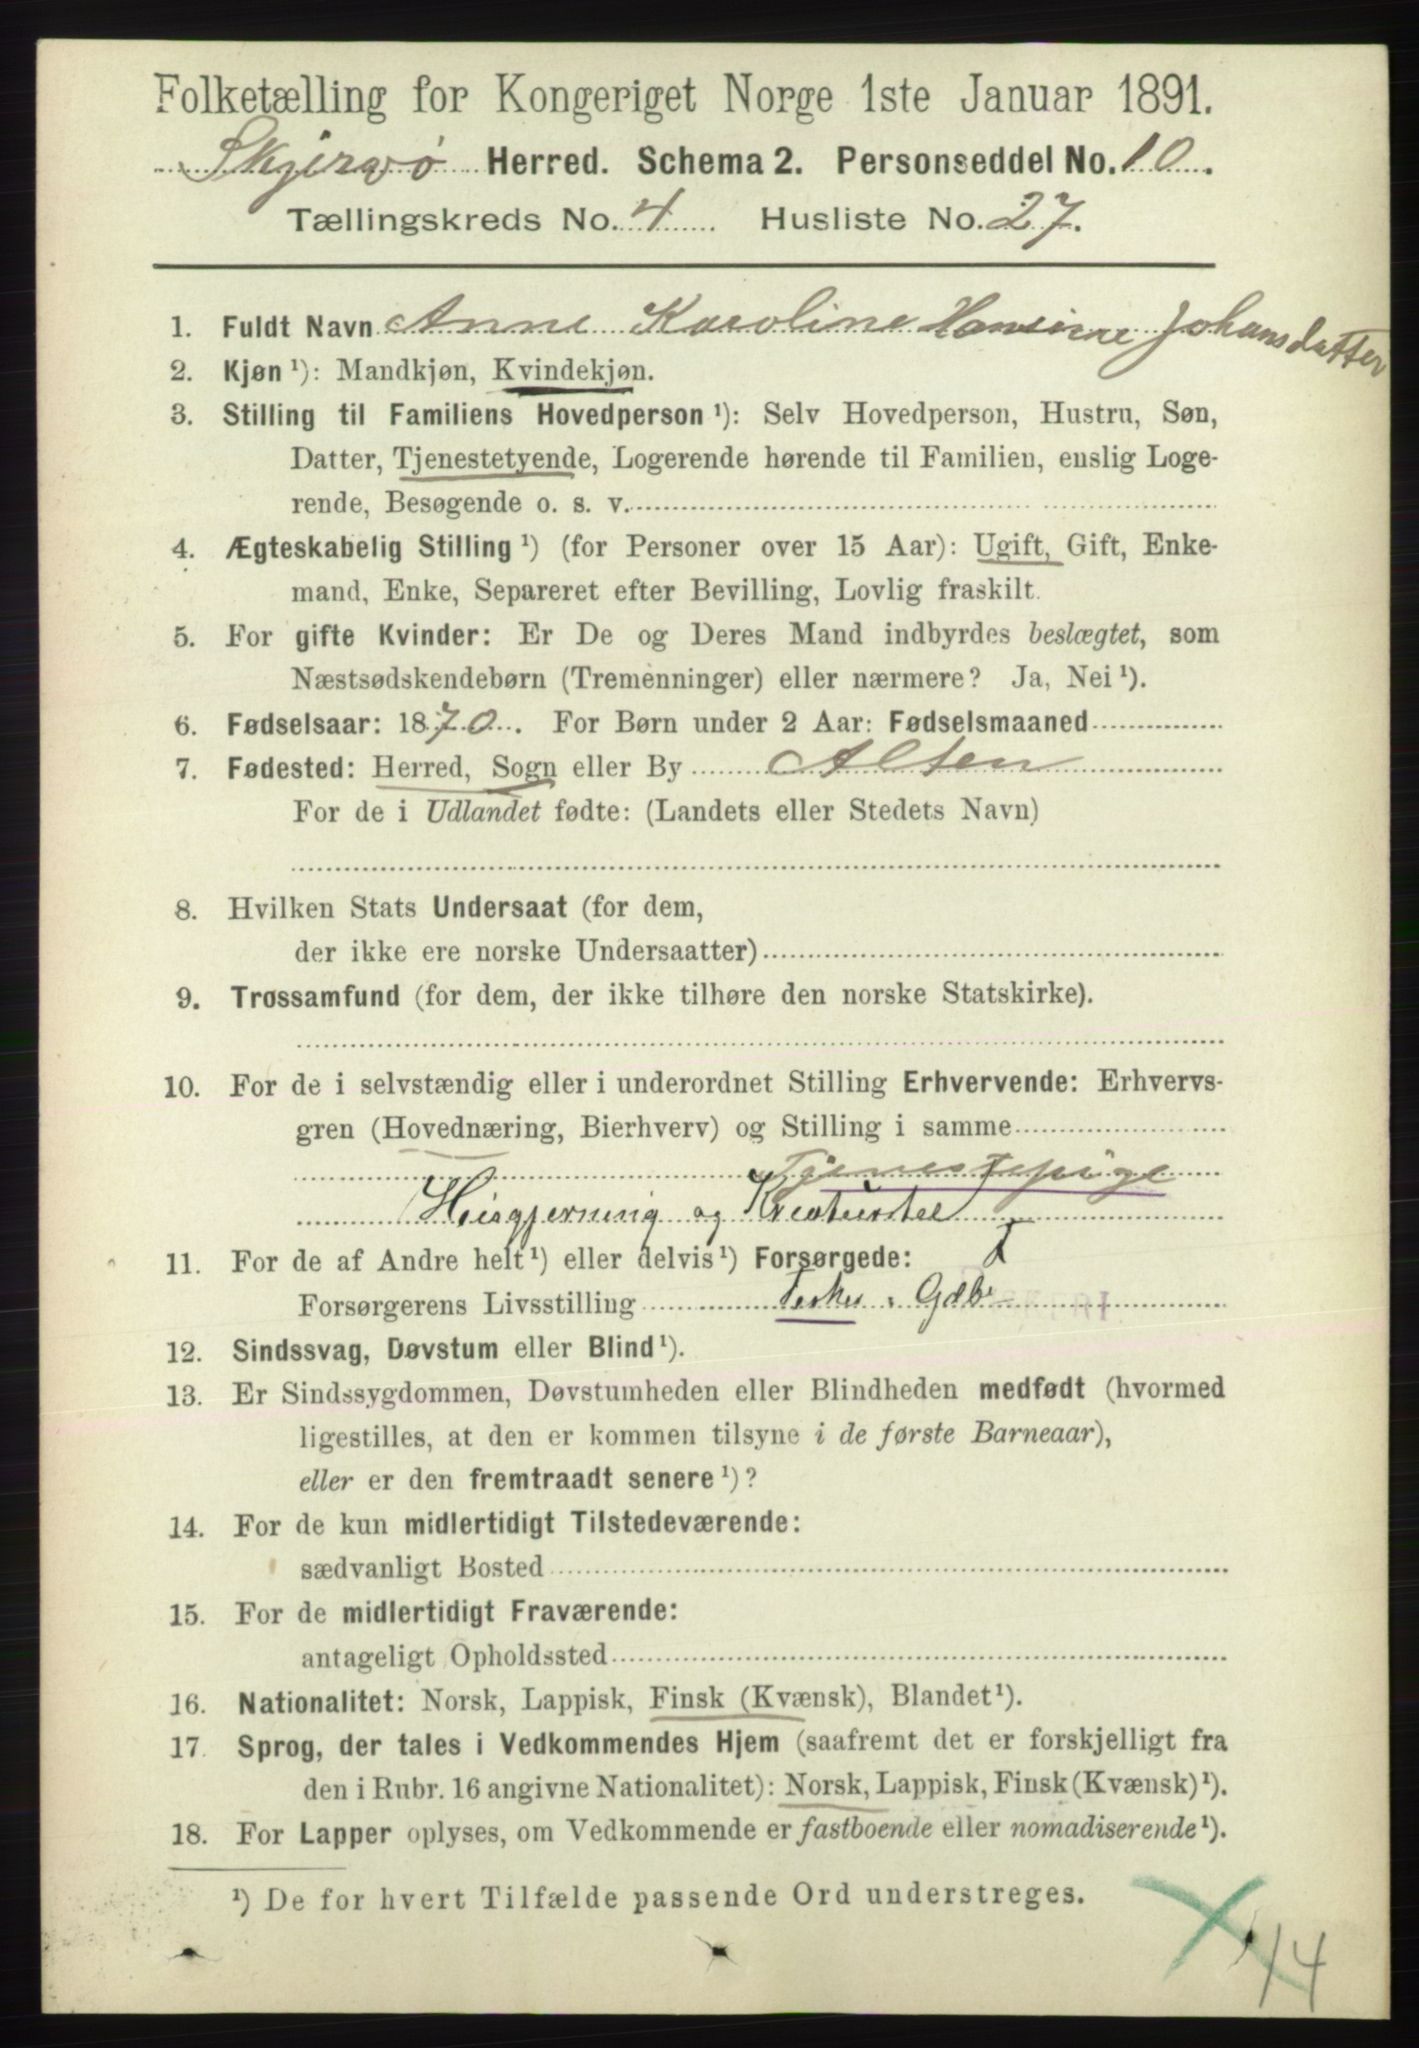 Folketælling for Kongeriget Norge 1ste Januar 1891.
Skjervø Herred. Schema 2. Personseddel No. 10.
Tællingskreds No. 4 Husliste No. 27.
1. Fuldt Navn Anne Karoline Hansine Johansdatter
2. Kjøn ¹): Mandkjøn, Kvindekjøn.
3. Stilling til Familiens Hovedperson ¹): Selv Hovedperson, Hustru, Søn,
Datter, Tjenestetyende, Logerende hørende til Familien, enslig Loge-
rende, Besøgende o. s. v.
4. Ægteskabelig Stilling ¹) (for Personer over 15 Aar): Ugift, Gift, Enke-
mand, Enke, Separeret efter Bevilling, Lovlig fraskilt.
5. For gifte Kvinder: Er De og Deres Mand indbyrdes beslægtet, som
Næstsødskendebørn (Tremenninger) eller nærmere? Ja, Nei ¹).
6. Fødselsaar: 1870. For Børn under 2 Aar: Fødselsmaaned
7. Fødested: Herred, Sogn eller By Alten
For de i Udlandet fødte: (Landets eller Stedets Navn)
8. Hvilken Stats Undersaat (for dem,
der ikke ere norske Undersaatter)
9. Trossamfund (for dem, der ikke tilhøre den norske Statskirke).
10. For de i selvstændig eller i underordnet Stilling Erhvervende: Erhvervs-
gren (Hovednæring, Bierhverv) og Stilling i samme
Tjenestepige
Husgjerning og Kreaturstel
11. For de af Andre helt ¹) eller delvis ¹) Forsørgede: T
Forsørgerens Livsstilling Fisker. Gdb.
12. Sindssvag, Døvstum eller Blind ¹).
13. Er Sindssygdommen, Døvstumheden eller Blindheden medfødt (hvormed
ligestilles, at den er kommen tilsyne i de første Barneaar),
eller er den fremtraadt senere ¹)?
14. For de kun midlertidigt Tilstedeværende:
sædvanligt Bosted
15. For de midlertidigt Fraværende:
antageligt Opholdssted
16. Nationalitet: Norsk, Lappisk, Finsk (Kvænsk), Blandet ¹).
17. Sprog, der tales i Vedkommendes Hjem (saafremt det er forskjelligt fra
den i Rubr. 16 angivne Nationalitet): Norsk, Lappisk, Finsk (Kvænsk) ¹).
18. For Lapper oplyses, om Vedkommende er fastboende eller nomadiserende ¹).
¹) De for hvert Tilfælde passende Ord understreges.
14